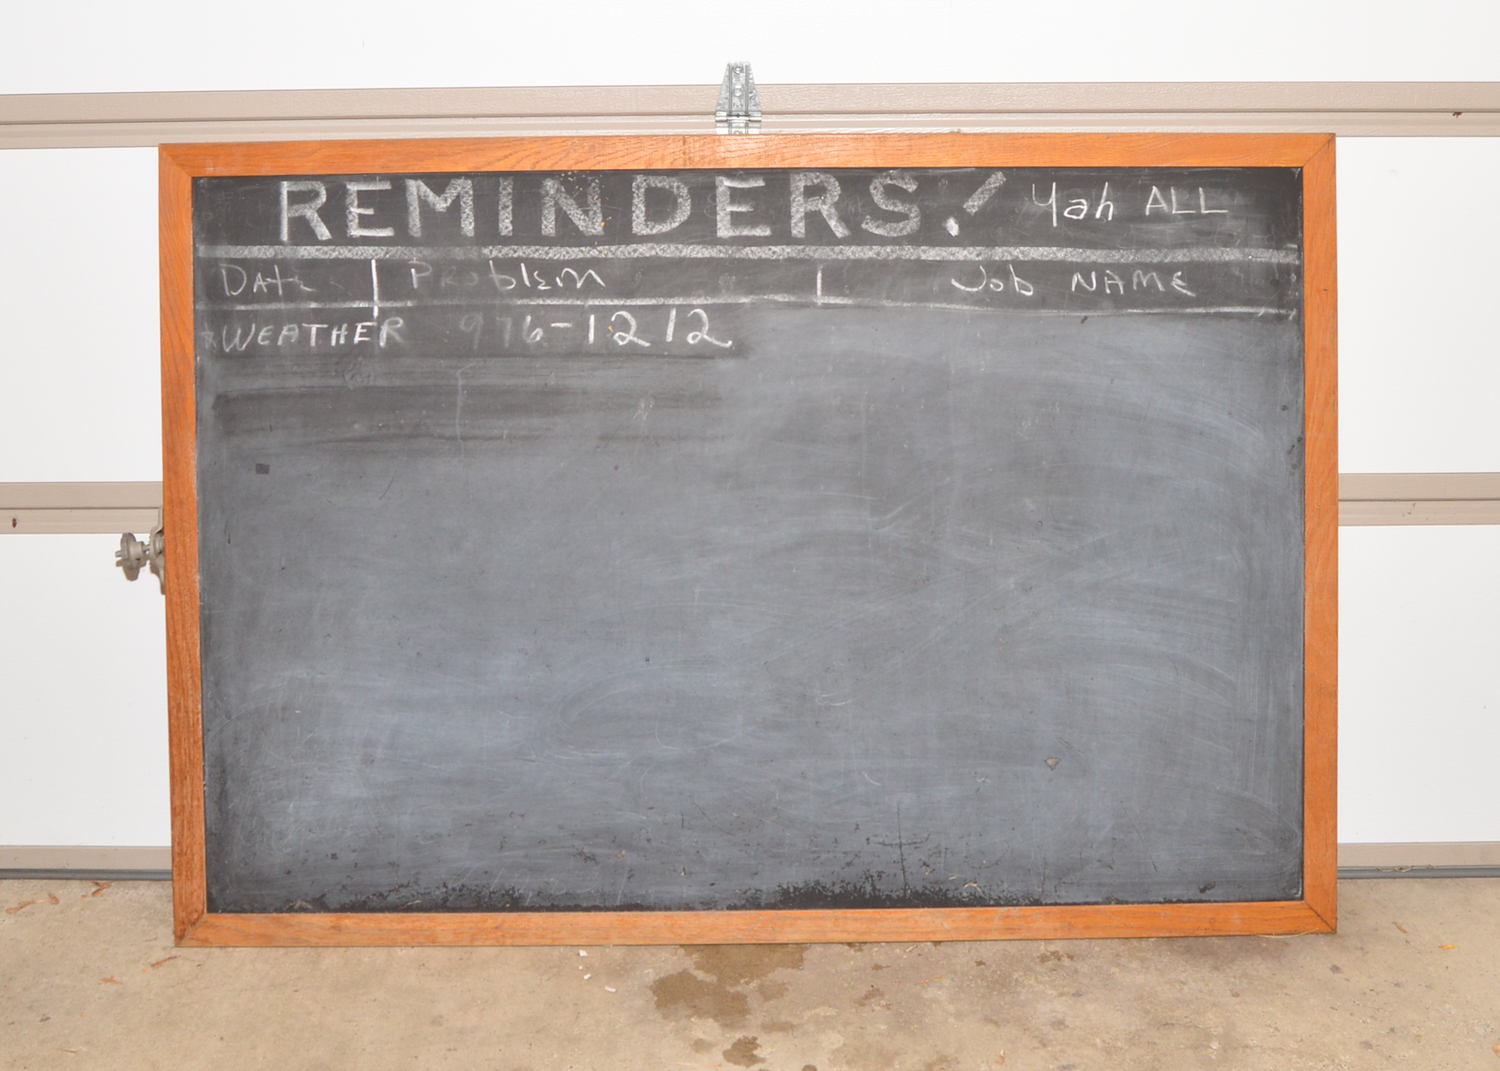 REMINDERS! Yah ALL
Date | Problem | Job NAME
*WEATHER 976-1212